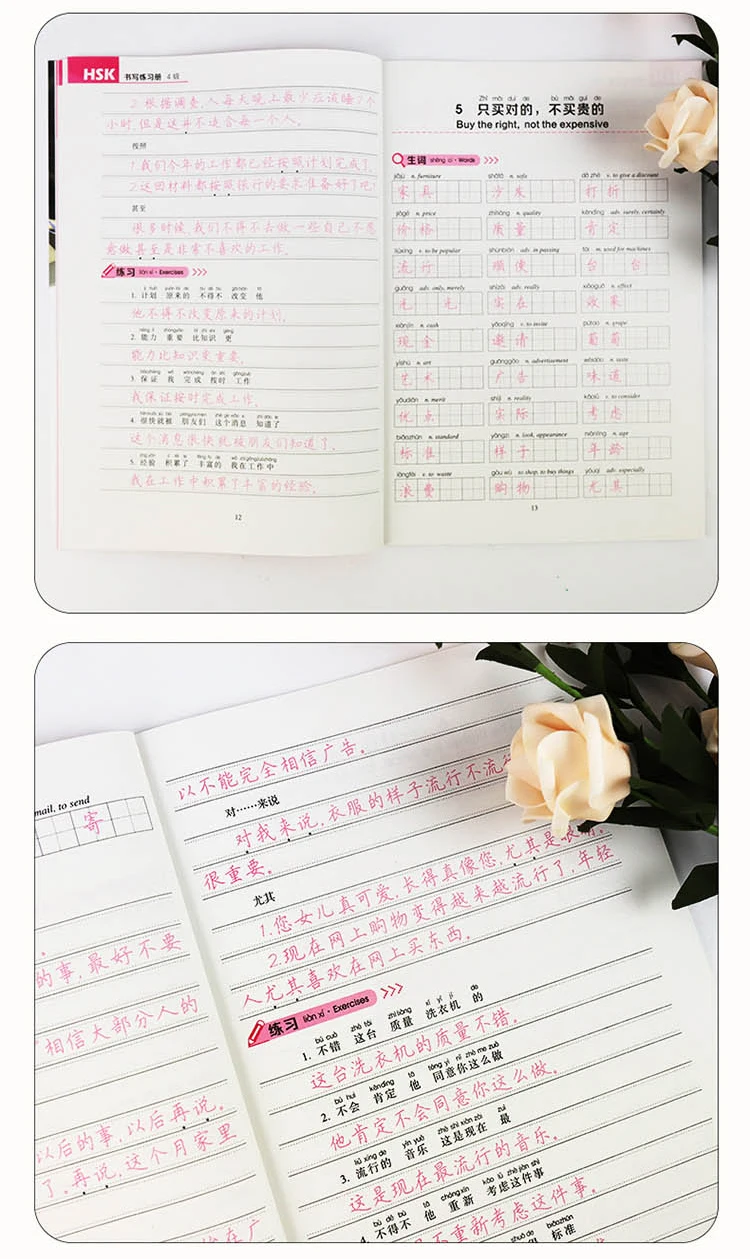 HSK 书写练习册 4 级
2.根据调查,人每天晚上最少应该睡7个
小时,但是这并不适合每一个人。
按照
1.我们今年的工作都已经按照计划完成了。
2.这回材料都按照银行的要求准备好了吧?
甚至
很多时候,我们不得不去做一些自己不愿
意做甚至是非常不喜欢的工作。
练习 liàn xí · Exercises
1. 计划 原来的 不得不 改变 他
他不得不改变原来的计划。
2. 能力 重要 比知识 更
能力比知识更重要。
3. 保证 我 完成 按时 工作
我保证按时完成工作。
4. 很快就被 朋友们 这个消息 知道了
这个消息很快就被朋友们知道了。
5. 经验 积累了 丰富的 我在工作中
我在工作中积累了丰富的经验。
12
Zhǐ mǎi duì de bù mǎi guì de
5 只买对的，不买贵的
Buy the right, not the expensive
生词 shēng cí · Words
jiājù n. furniture shāfā n. sofa dǎ zhé v. to give a discount
家具 沙发 打折
jiàgé n. price zhìliàng n. quality kěndìng adv. surely, certainly
价格 质量 肯定
liúxíng v. to be popular shùnbiàn adv. in passing tái m. used for machines
流行 顺便 台 台
guāng adv. only, merely shízài adv. really xiàoguǒ n. effect
光 光 实在 效果
xiànjīn n. cash yāoqǐng v. to invite pútao n. grape
现金 邀请 葡萄
yìshù n. art guǎnggào n. advertisement wèidào n. taste
艺术 广告 味道
yōudiǎn n. merit shíjì n. reality kǎolǜ v. to consider
优点 实际 考虑
biāozhǔn n. standard yàngzi n. look, appearance niánlíng n. age
标准 样子 年龄
làngfèi v. to waste gòu wù to shop, to buy things yóuqí adv. especially
浪费 购物 尤其
13
mail, to send
寄
的事,最好不要
相信大部分人的
以后的事,以后再说。
了。再说,这个月家里
以不能完全相信广告。
对……来说
对我来说,衣服的样子流行不流
很重要。
尤其
1.您女儿真可爱,长得真像您,尤其是眼睛。
2.现在网上购物变得越来越流行了,年轻
人尤其喜欢在网上买东西。
练习 liàn xí · Exercises
bú cuò zhè tái zhìliàng xǐ yī jī de
1. 不错 这台 质量 洗衣机 的
这台洗衣机的质量不错。
bú huì kěndìng tā tóng yì nǐ zhè me zuò
2. 不会 肯定 他 同意你这么做
他肯定不会同意你这么做。
liú xíng de yīn yuè zhè shì xiàn zài zuì
3. 流行的 音乐 这是现在 最
这是现在最流行的音乐。
bù dé bù tā chóngxīn kǎo lǜ zhè jiàn shì
4. 不得不 他 重新 考虑这件事
不重新考虑这件事。
biāozhǔn
标准